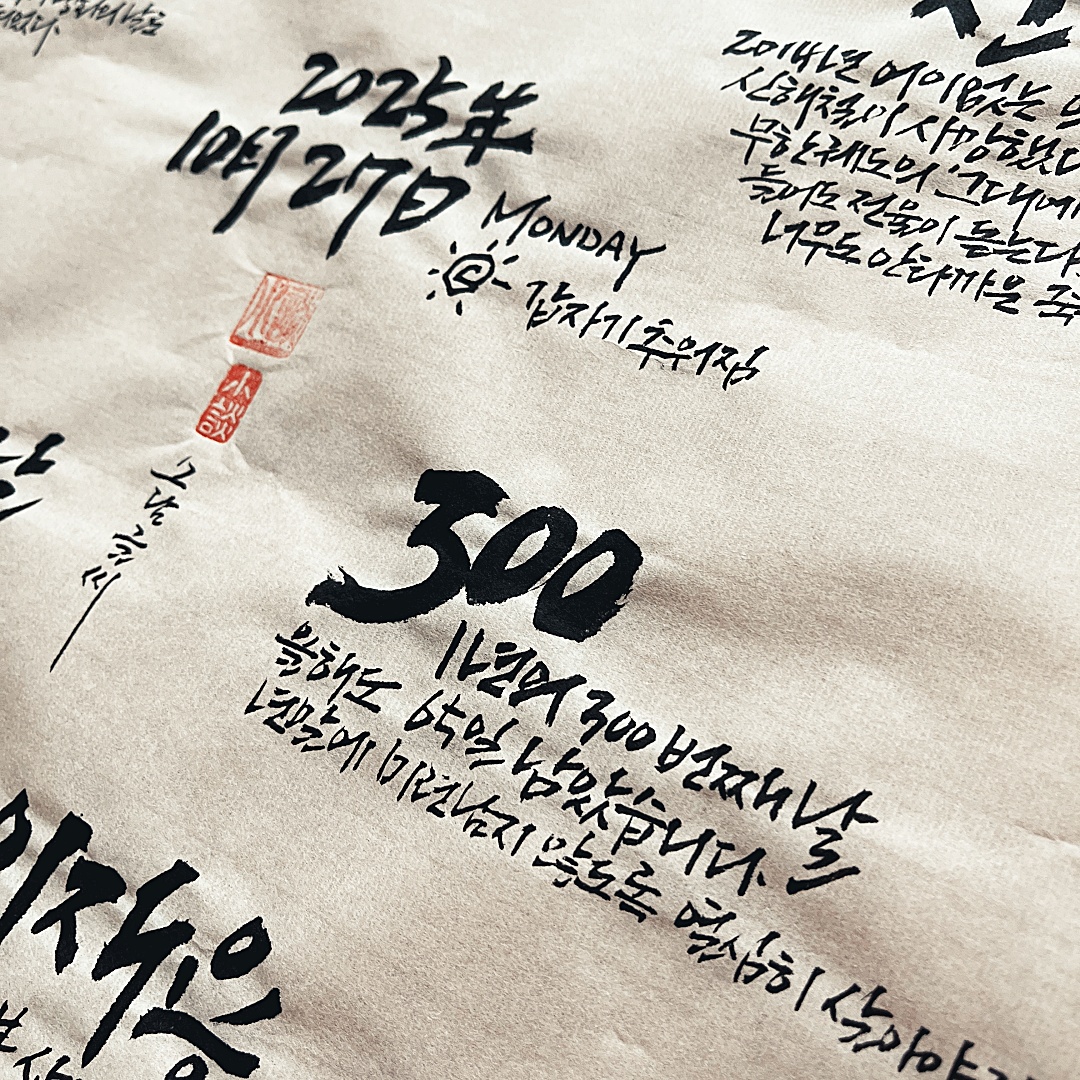 2025年
10月 27日 MONDAY
갑자기 추워짐
小談
그날글씨
300
1년의 300번째 날
올해도 65일 남았습니다.
년말에 미련남지 않도록 열심히 살아야
2014년 어이없는
신해철이 사망했다
무한궤도의 '그대에게
들어도 전율이 돋는다
너무도 안타까운
이자동